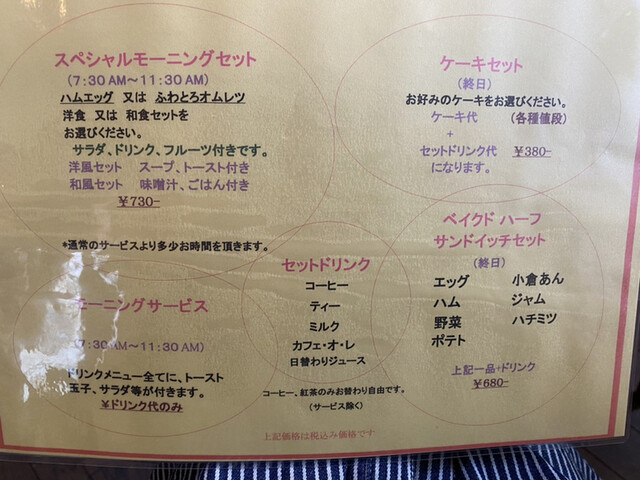 スペシャルモーニングセット
(7:30AM～11:30AM)
ハムエッグ 又は ふわとろオムレツ
洋食 又は 和食セットを
お選びください。
サラダ、ドリンク、フルーツ付きです。
洋風セット スープ、トースト付き
和風セット 味噌汁、ごはん付き
￥730-
*通常のサービスより多少お時間を頂きます。
ケーキセット
(終日)
お好みのケーキをお選びください。
ケーキ代 (各種値段)
+
セットドリンク代 ￥380-
になります。
モーニングサービス
(7:30AM～11:30AM)
ドリンクメニュー全てに、トースト
玉子、サラダ等が付きます。
￥ドリンク代のみ
セットドリンク
コーヒー
ティー
ミルク
カフェ・オ・レ
日替わりジュース
コーヒー、紅茶のみお替わり自由です。
(サービス除く)
ベイクド ハーフ
サンドイッチセット
(終日)
エッグ 小倉あん
ハム ジャム
野菜 ハチミツ
ポテト
上記一品+ドリンク
￥680-
上記価格は税込み価格です